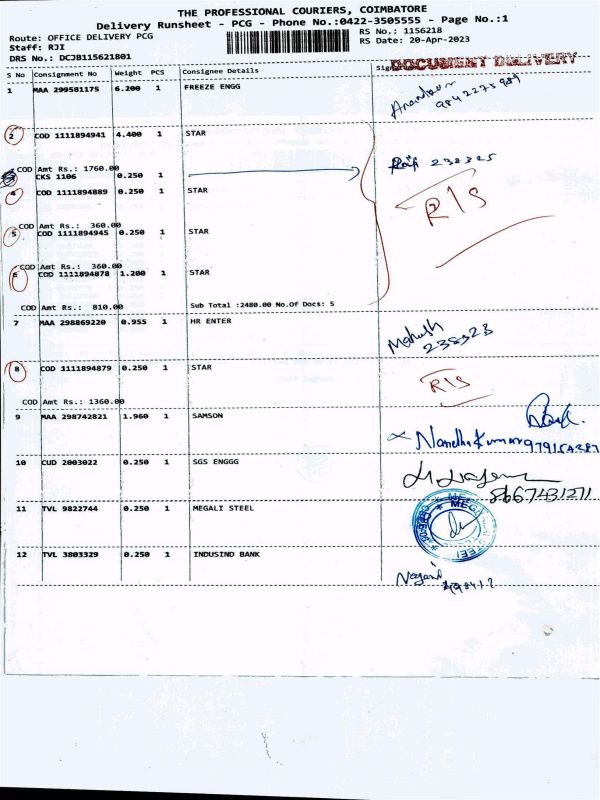 THE PROFESSIONAL COURIERS, COIMBATORE
Delivery Runsheet - PCG - Phone No.:0422-3505555 - Page No.:1
Route: OFFICE DELIVERY PCG
RS No.: 1156218
Staff: RJI
RS Date: 20-Apr-2023
DRS No.: DCJB115621801
DOCUMENT DELIVERY
S No Consignment No Weight PCS Consignee Details
1 MAA 299581175 6.200 1 FREEZE ENGG
2 COD 1111894941 4.400 1 STAR
COD Amt Rs.: 1760.00
CKS 1106 0.250 1
238325
4 COD 1111894889 0.250 1 STAR
R/S
COD Amt Rs.: 360.00
5 COD 1111894945 0.250 1 STAR
COD Amt Rs.: 360.00
6 COD 1111894878 1.200 1 STAR
COD Amt Rs.: 810.00 Sub Total :2480.00 No.Of Docs: 5
7 MAA 298869220 0.955 1 HR ENTER
Mahesh
238323
8 COD 1111894879 0.250 1 STAR
R/S
COD Amt Rs.: 1360.00
9 MAA 298742821 1.960 1 SAMSON
Nandhakumar
10 CUD 2003022 0.250 1 SGS ENGGG
8667431271
11 TVL 9822744 0.250 1 MEGALI STEEL
12 TVL 3803329 0.250 1 INDUSIND BANK